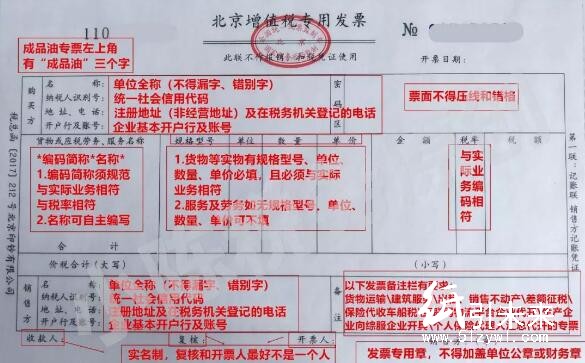 110
北京增值税专用发票
№
此联不作报销、扣税凭证使用
开票日期:
成品油专票左上角
有“成品油”三个字
购买方
名称:
纳税人识别号:
地址、电话:
开户行及账号:
单位全称(不得漏字、错别字)
统一社会信用代码
注册地址(非经营地址)及在税务机关登记的电话
企业基本开户行及账号
密码区
票面不得压线和错格
货物或应税劳务、服务名称
规格型号
单位
数量
单价
金额
税率
税额
*编码简称*名称*
1.编码简称须规范
与实际业务相符
与税率相符
2.名称可自主编写
1.货物等实物有规格型号、单位、
数量、单价必填,且必须与实际
业务相符
2.服务及劳务如无规格型号、单位、
数量、单价可不填
与实际业务编码相符
合计
价税合计(大写)
(小写)
销售方
名称:
纳税人识别号:
地址、电话:
开户行及账号:
单位全称(不得漏字、错别字)
统一社会信用代码
注册地址及在税务机关登记的电话
企业基本开户行及账号
备注
以下发票备注栏有要求:
货物运输\建筑服务\
销售不动产\差额征税\
保险代收车船税
收款人:
复核:
开票人:
实名制,复核和开票人最好不是一个人
发票专用章,不得加盖单位公章或财务章
税总函〔2017〕212号北京印钞有限公司
第一联:记账联 销售方记账凭证